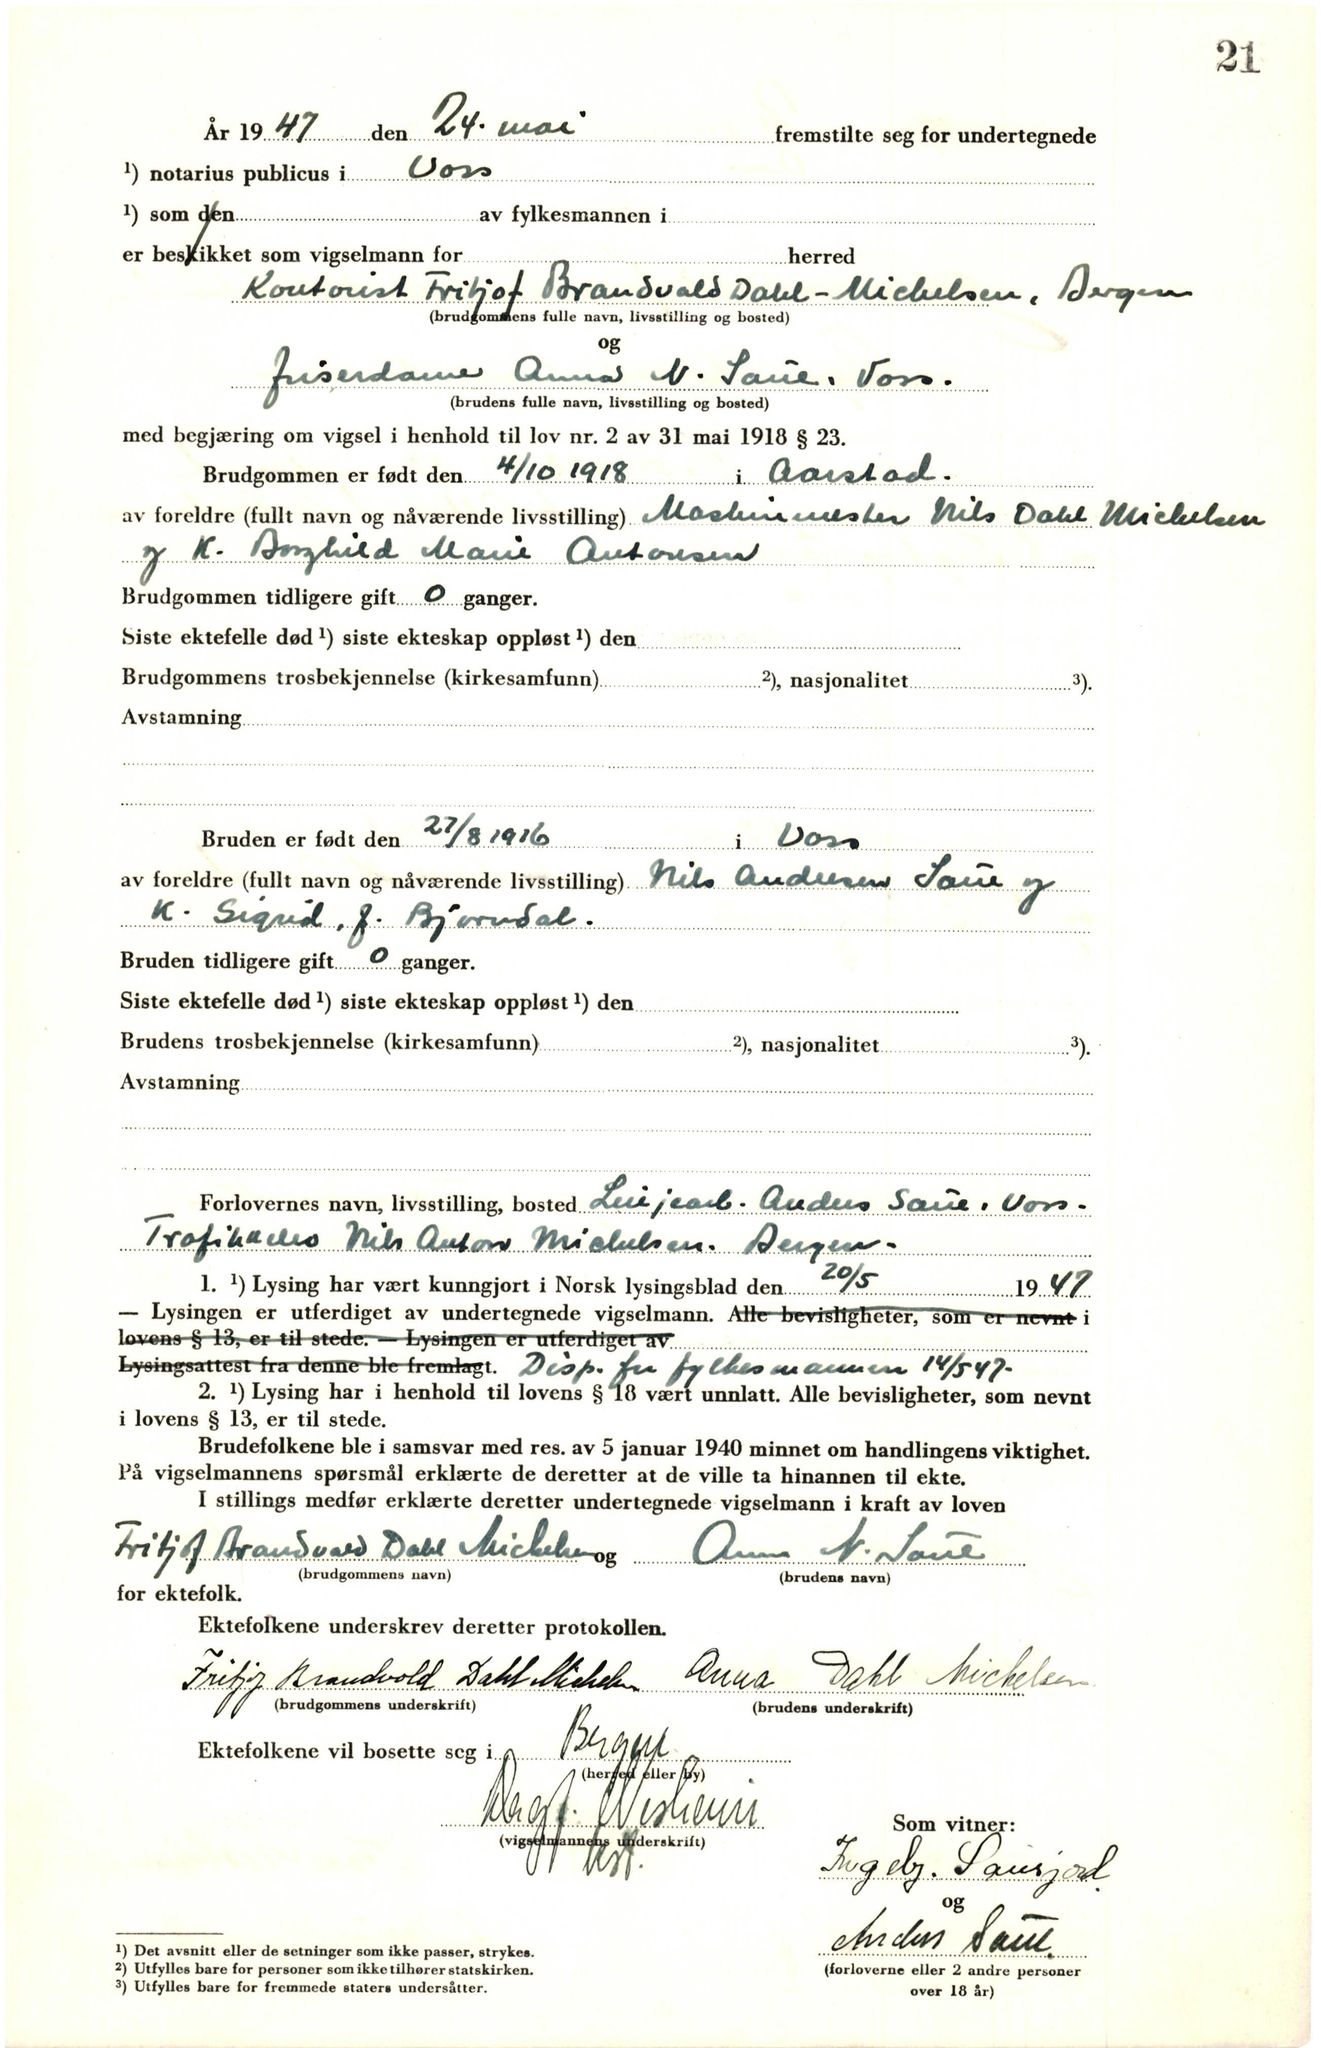 21
År 19 47 den 24. mai fremstilte seg for undertegnede
¹) notarius publicus i Voss
¹) som den av fylkesmannen i
er beskikket som vigselmann for herred
Kontorist Fritjof Brandvald Dahl-Michelsen, Bergen
(brudgommens fulle navn, livsstilling og bosted)
og
friserdame Anna N. Saue, Voss.
(brudens fulle navn, livsstilling og bosted)
med begjæring om vigsel i henhold til lov nr. 2 av 31 mai 1918 § 23.
Brudgommen er født den 4/10 1918 i Aarstad.
av foreldre (fullt navn og nåværende livsstilling) Maskinmester Nils Dahl Michelsen
og K. Borghild Marie Antonsen
Brudgommen tidligere gift 0 ganger.
Siste ektefelle død ¹) siste ekteskap oppløst ¹) den
Brudgommens trosbekjennelse (kirkesamfunn) ²), nasjonalitet ³).
Avstamning
Bruden er født den 27/8 1916 i Voss
av foreldre (fullt navn og nåværende livsstilling) Nils Andersen Saue og
K. Sigrid, f. Bjørndal.
Bruden tidligere gift 0 ganger.
Siste ektefelle død ¹) siste ekteskap oppløst ¹) den
Brudens trosbekjennelse (kirkesamfunn) ²), nasjonalitet ³).
Avstamning
Forlovernes navn, livsstilling, bosted Linjearb. Anders Saue, Voss-
Nils Anton Michelsen. Bergen-
1. ¹) Lysing har vært kunngjort i Norsk lysingsblad den 20/5 19 47
— Lysingen er utferdiget av undertegnede vigselmann. Alle bevisligheter, som er nevnt i
lovens § 13, er til stede. — Lysingen er utferdiget av
Lysingsattest fra denne ble fremlagt. Disp. fra fylkesmannen 14/5 47-
2. ¹) Lysing har i henhold til lovens § 18 vært unnlatt. Alle bevisligheter, som nevnt
i lovens § 13, er til stede.
Brudefolkene ble i samsvar med res. av 5 januar 1940 minnet om handlingens viktighet.
På vigselmannens spørsmål erklærte de deretter at de ville ta hinannen til ekte.
I stillings medfør erklærte deretter undertegnede vigselmann i kraft av loven
Fritjof Brandvald Dahl Michelsen og Anna N. Saue
(brudgommens navn) (brudens navn)
for ektefolk.
Ektefolkene underskrev deretter protokollen.
Fritjof Brandvold Dahl Michelsen Anna Dahl Michelsen
(brudgommens underskrift) (brudens underskrift)
Ektefolkene vil bosette seg i Bergen
(herred eller by)
(vigselmannens underskrift)
Som vitner:
og
Anders Saue.
(forloverne eller 2 andre personer
over 18 år)
¹) Det avsnitt eller de setninger som ikke passer, strykes.
²) Utfylles bare for personer som ikke tilhører statskirken.
³) Utfylles bare for fremmede staters undersåtter.